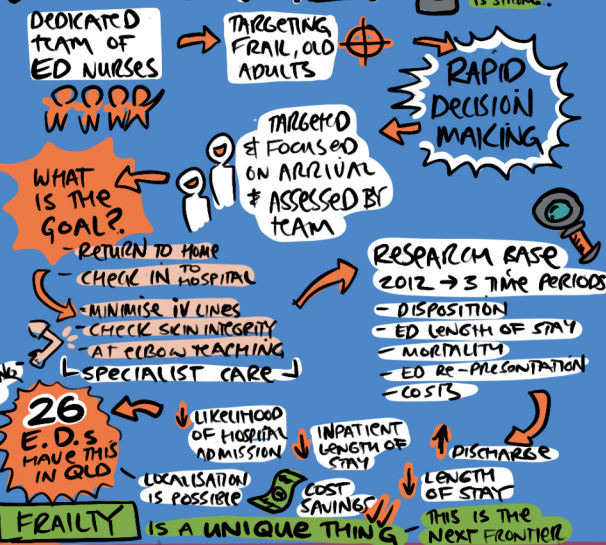 IS STRONG.
DEDICATED
TEAM OF
ED NURSES
TARGETING
FRAIL, OLD
ADULTS
RAPID
DECISION
MAKING
TARGETED
& FOCUSED
ON ARRIVAL
& ASSESSED BY
TEAM
WHAT
IS THE
GOAL?
- RETURN TO HOME
- CHECK IN TO HOSPITAL
- MINIMISE IV LINES
- CHECK SKIN INTEGRITY
- AT ELBOW TEACHING
SPECIALIST CARE
RESEARCH BASE
2012 → 3 TIME PERIODS
- DISPOSITION
- ED LENGTH OF STAY
- MORTALITY
- ED RE-PRESENTATION
- COSTS
DISCHARGE
LENGTH
OF STAY
INPATIENT
LENGTH OF
STAY
COST
SAVINGS
LIKELIHOOD
OF HOSPITAL
ADMISSION
LOCALISATION
IS POSSIBLE
26
E.D.s
HAVE THIS
IN QLD
FRAILTY IS A UNIQUE THING -
THIS IS THE
NEXT FRONTIER